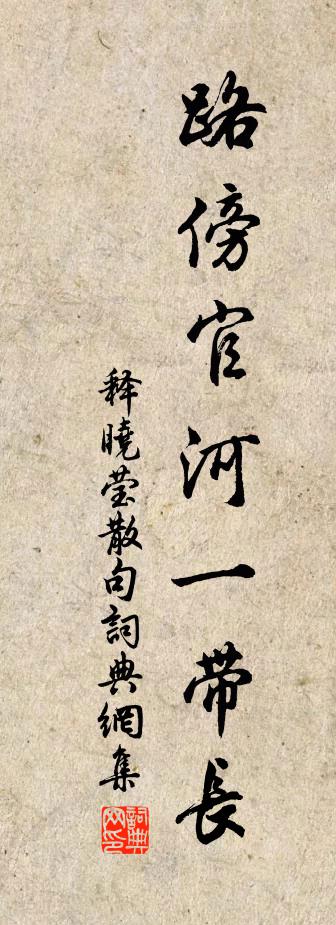 路傍官河一带長
释曉莹散句詞典網集
詞典
网印